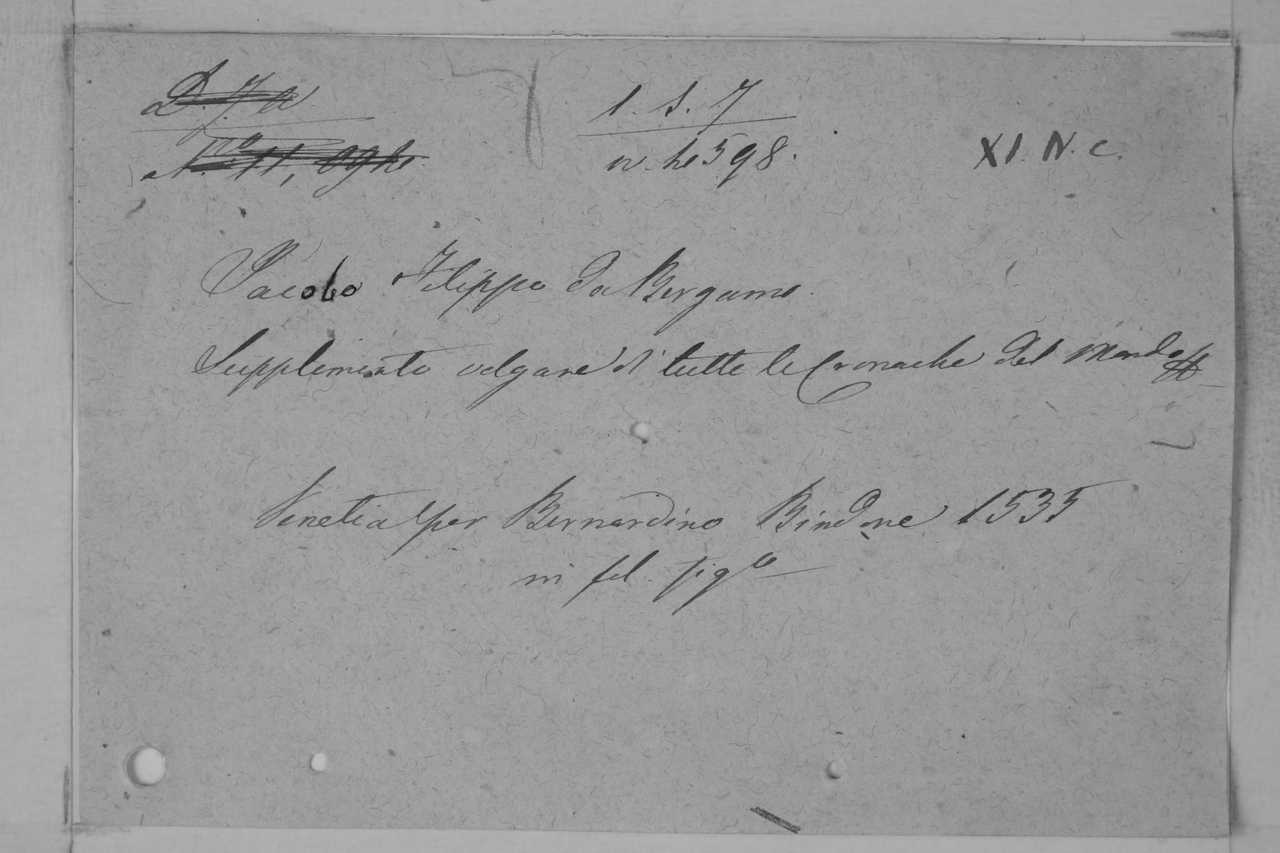 1. S. 7
XI. N. c.
598.
Jacobo Filippo da Bergamo.
Supplimento volgare di tutte le Cronache del Mondo
Venetia per Bernardino Bindone 1535
in fol. fig^to